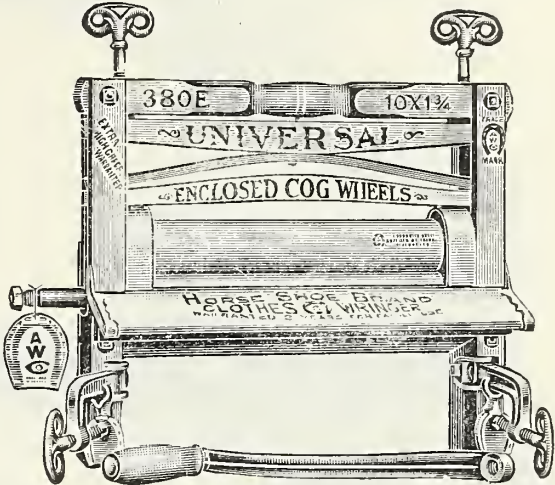 380E 10X1¾
UNIVERSAL
ENCLOSED COG WHEELS
EXTRA
HIGH GRADE
WARRANTED
TRADE
MARK
HORSE SHOE BRAND
CLOTHES WRINGER
A
W